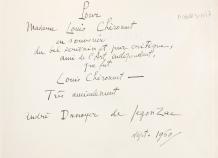 Pour
Madame Louis Chéronnet
en souvenir
du bel écrivain et pur critique,
ami de l'Art indépendant,
que fut
Louis Chéronnet —
Très amicalement
André Dunoyer de Segonzac
sept. 1950